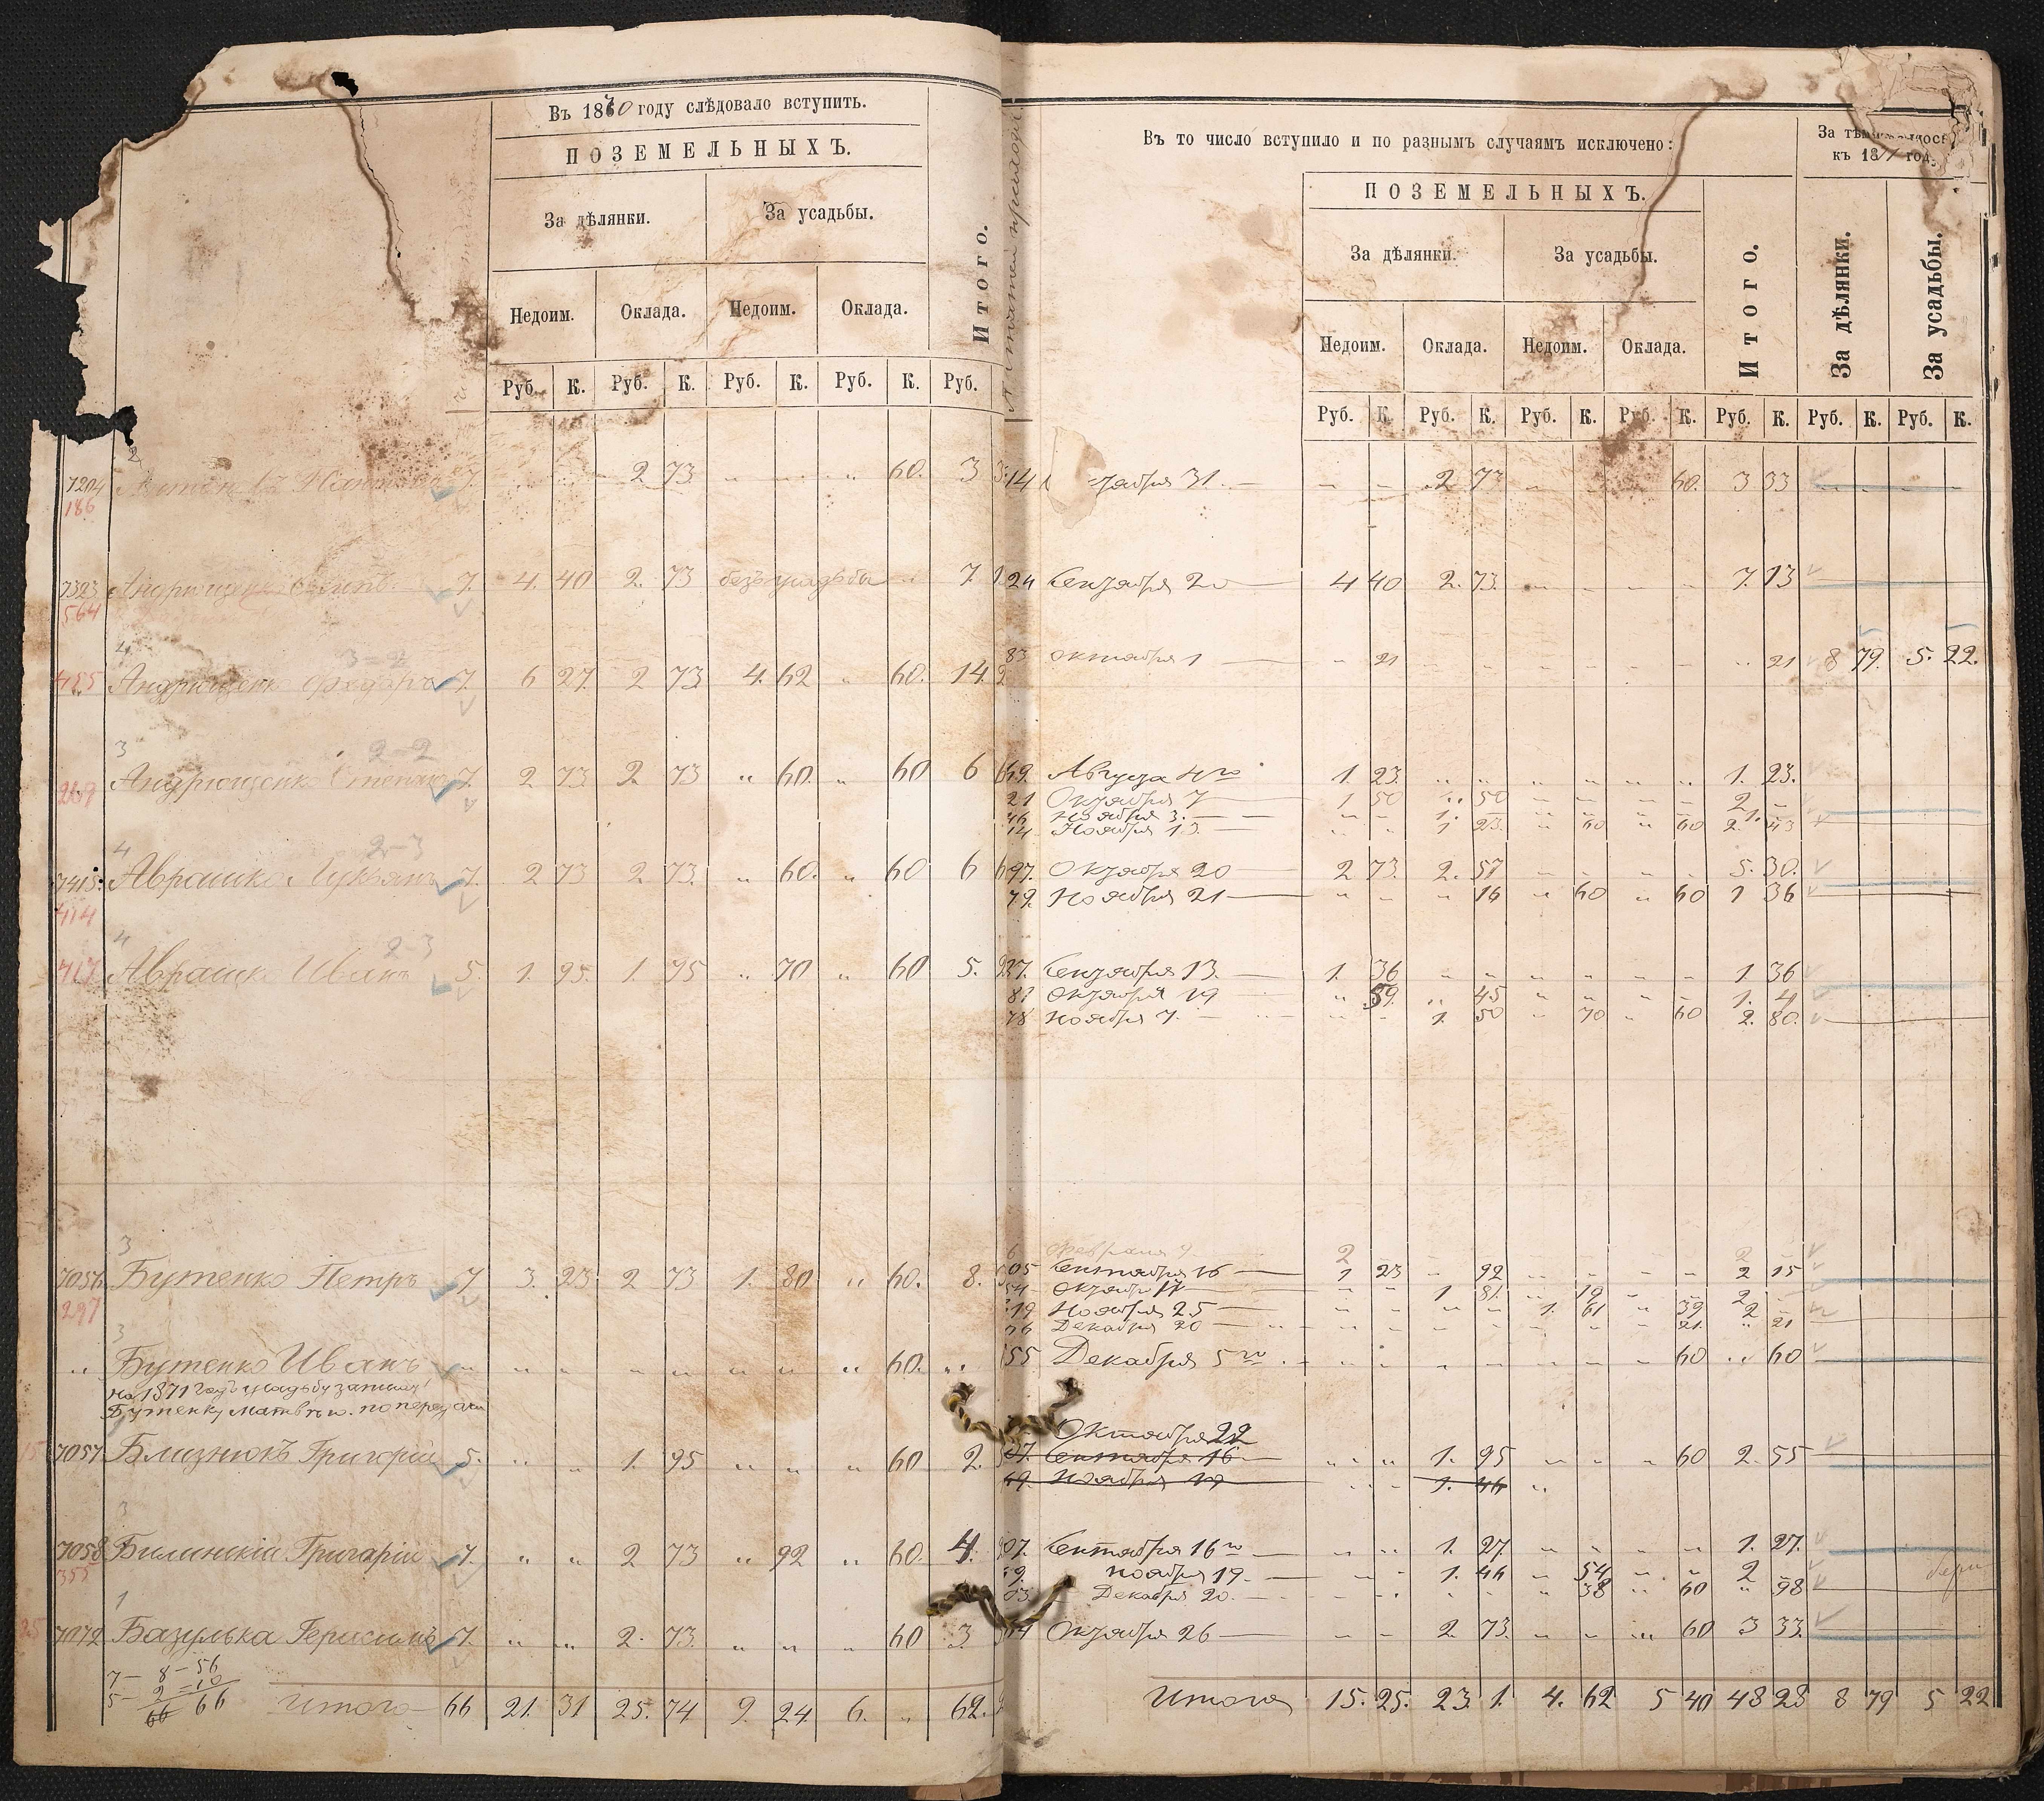 Въ 1870 году слѣдовало вступить.
ПОЗЕМЕЛЬНЫХЪ.
За дѣлянки. За усадьбы.
Итого.
Недоим. Оклада. Недоим. Оклада.
Руб. К. Руб. К. Руб. К. Руб. К. Руб.
2
7204 7. 2 73 " 60. 3
186
7323 Андрющенко 7. 4. 40 2. 73 безъ усадьбы 7.
564
4 3=2
455 Андрющенко Федоръ 7. 6 27. 2 73 4. 62 " 60. 14.
3 2-2
269 Андрющенко Степанъ 7. 2 73 2 73 " 60. " 60 6
4 2-3
7415. Аврашко Лукьянъ 7. 2 73 2 73. " 60. " 60 6
414
4 2-3
417 Аврашко Иванъ 5. 1. 95. 1. 95 " 70 " 60 5.
3
7056. Бутенко Петръ 7. 3. 23 2 73 1. 80 " 60. 8.
297
3
" Бутенко Иванъ " " " " " " " " 60. "
на 1871 годъ усадьбу
Бутенку Матвѣю.
7057 Близнюкъ Григорій 5. " " 1. 95 " " " 60 2.
3
7058 Билинскій Григорій 7. " " 2 73 " 92 " 60. 4.
355
1
25 7072 Базулька Герасимъ 7. " " 2. 73. " " " 60 3
7 — 8 — 56
5 — 2 = 10
66 66 Итого 66 21. 31 25. 74 9. 24 6. " 62.
Въ то число вступило и по разнымъ случаямъ исключено:
къ 1871 год
ПОЗЕМЕЛЬНЫХЪ.
За дѣлянки. За усадьбы.
Итого. За дѣлянки. За усадьбы.
Недоим. Оклада. Недоим. Оклада.
Руб. К. Руб. К. Руб. К. Руб. К. Руб. К. Руб. К. Руб. К.
31. — — — 2 73 — — — 60. 3 33
24 Сентября 20 4 40 2. 73. — — — — 7. 13
83 Октября 1 " 21 — — — — — — " 21 8 79. 5. 22.
69. Августа 4го 1. 23. " " " " " " 1. 23.
21 Октября 7 1 50 " 50 — — — — 2 —
46 Ноября 3. — — 1. — — — — — 1. —
14 Ноября 13. " " 1 23. " 60 " 60 2. 43
97. Октября 20 2 73. 2. 57 — — — — 5. 30.
79. Ноября 21 " — " 16 " 60 " 60 1 36
37. Сентября 13. 1. 36 " " " " " " 1 36
81 Октября 19 " 59. " 45 " " " " 1. 4
78 Ноября 7. — — 1. 50 " 70 " 60 2. 80.
6 Февраля 9. 2 — — — — — — — 2 —
05 Сентября 16 1 23 " 92 — — — — 2 15
54 Октября 17 " " 1 81. " 19 — — 2 —
19 Ноября 25 " " " " 1. 61 " 39 2 —
76 Декабря 20 — — — — — — — 21. " 21
155 Декабря 5го — — — — — — — 60 " 60
Октября 22
07. Сентября 16 " " " 1. 95 — — — 60 2. 55
69. Ноября 19 " — 1. 46 "
07. Сентября 16го — — 1. 27. — — — — 1. 27.
69. Ноября 19. — — 1. 46 " 54 — — 2 —
03. Декабря 20. — — — — " 38 " 60 " 98
14 Октября 26 — — 2. 73. — — " 60 3 33.
Итого 15. 25. 23. 1. 4. 62 5 40 48 28 8 79 5 22